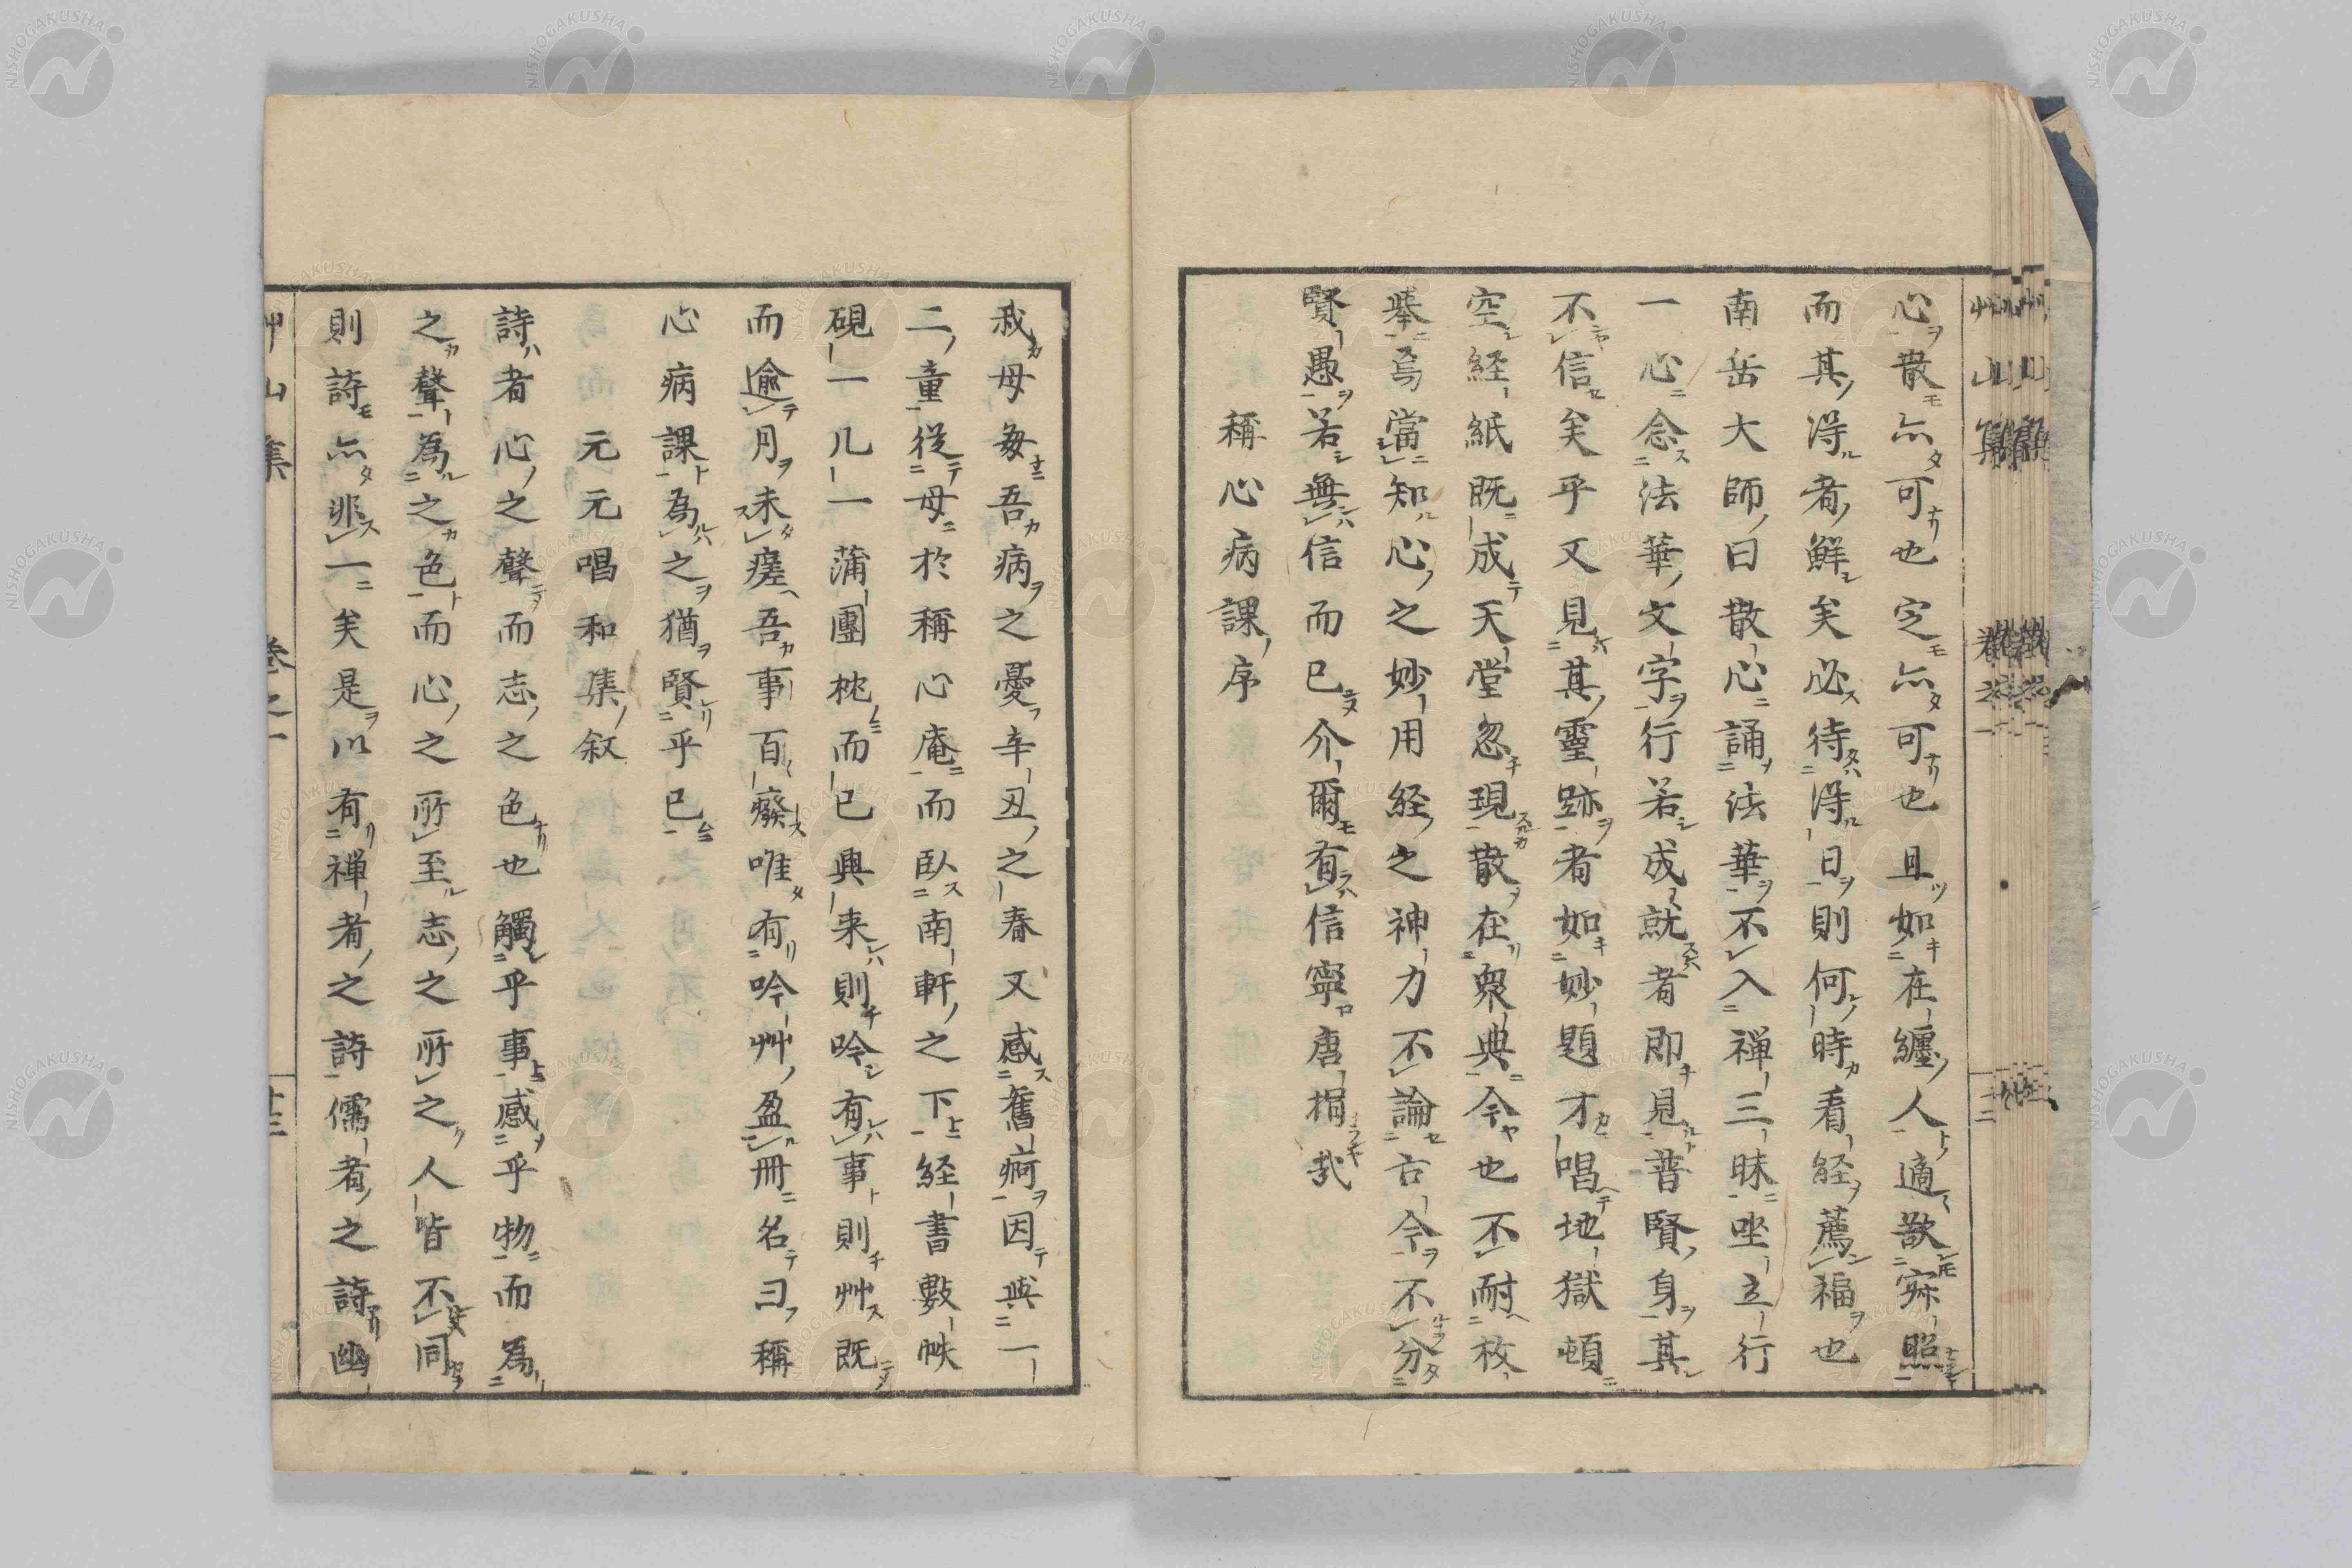 心散亦可也定亦可也且如在纏人適歇寂照
而其得者鮮矣必待得日則何時看経薦福也
南岳大師曰散心誦法華不入禅三昧坐立行
一心念法華文字行若成就者即見普賢身其
不信矣乎又見其靈跡者如妙題才唱地獄頓
空経紙既成天堂忽現散在衆典今也不耐枚
舉焉當知心之妙用経之神力不論古今不分
賢愚若無信而已介爾有信寧唐捐哉
稱心病課序
我母每吾病之憂辛丑之春又感舊痾因與一
二童從母於稱心庵而臥南軒之下経書數帙
硯一几一蒲團枕而已興来則吟有事則艸既
而逾月未瘥吾事百癈唯有吟艸盈冊名曰稱
心病課為之猶賢乎已
元元唱和集叙
詩者心之聲而志之色也觸乎事感乎物而為
之聲為之色而心之所至志之所之人皆不同
則詩亦非一矣是以有禅者之詩儒者之詩幽
艸山集 卷之一 十三